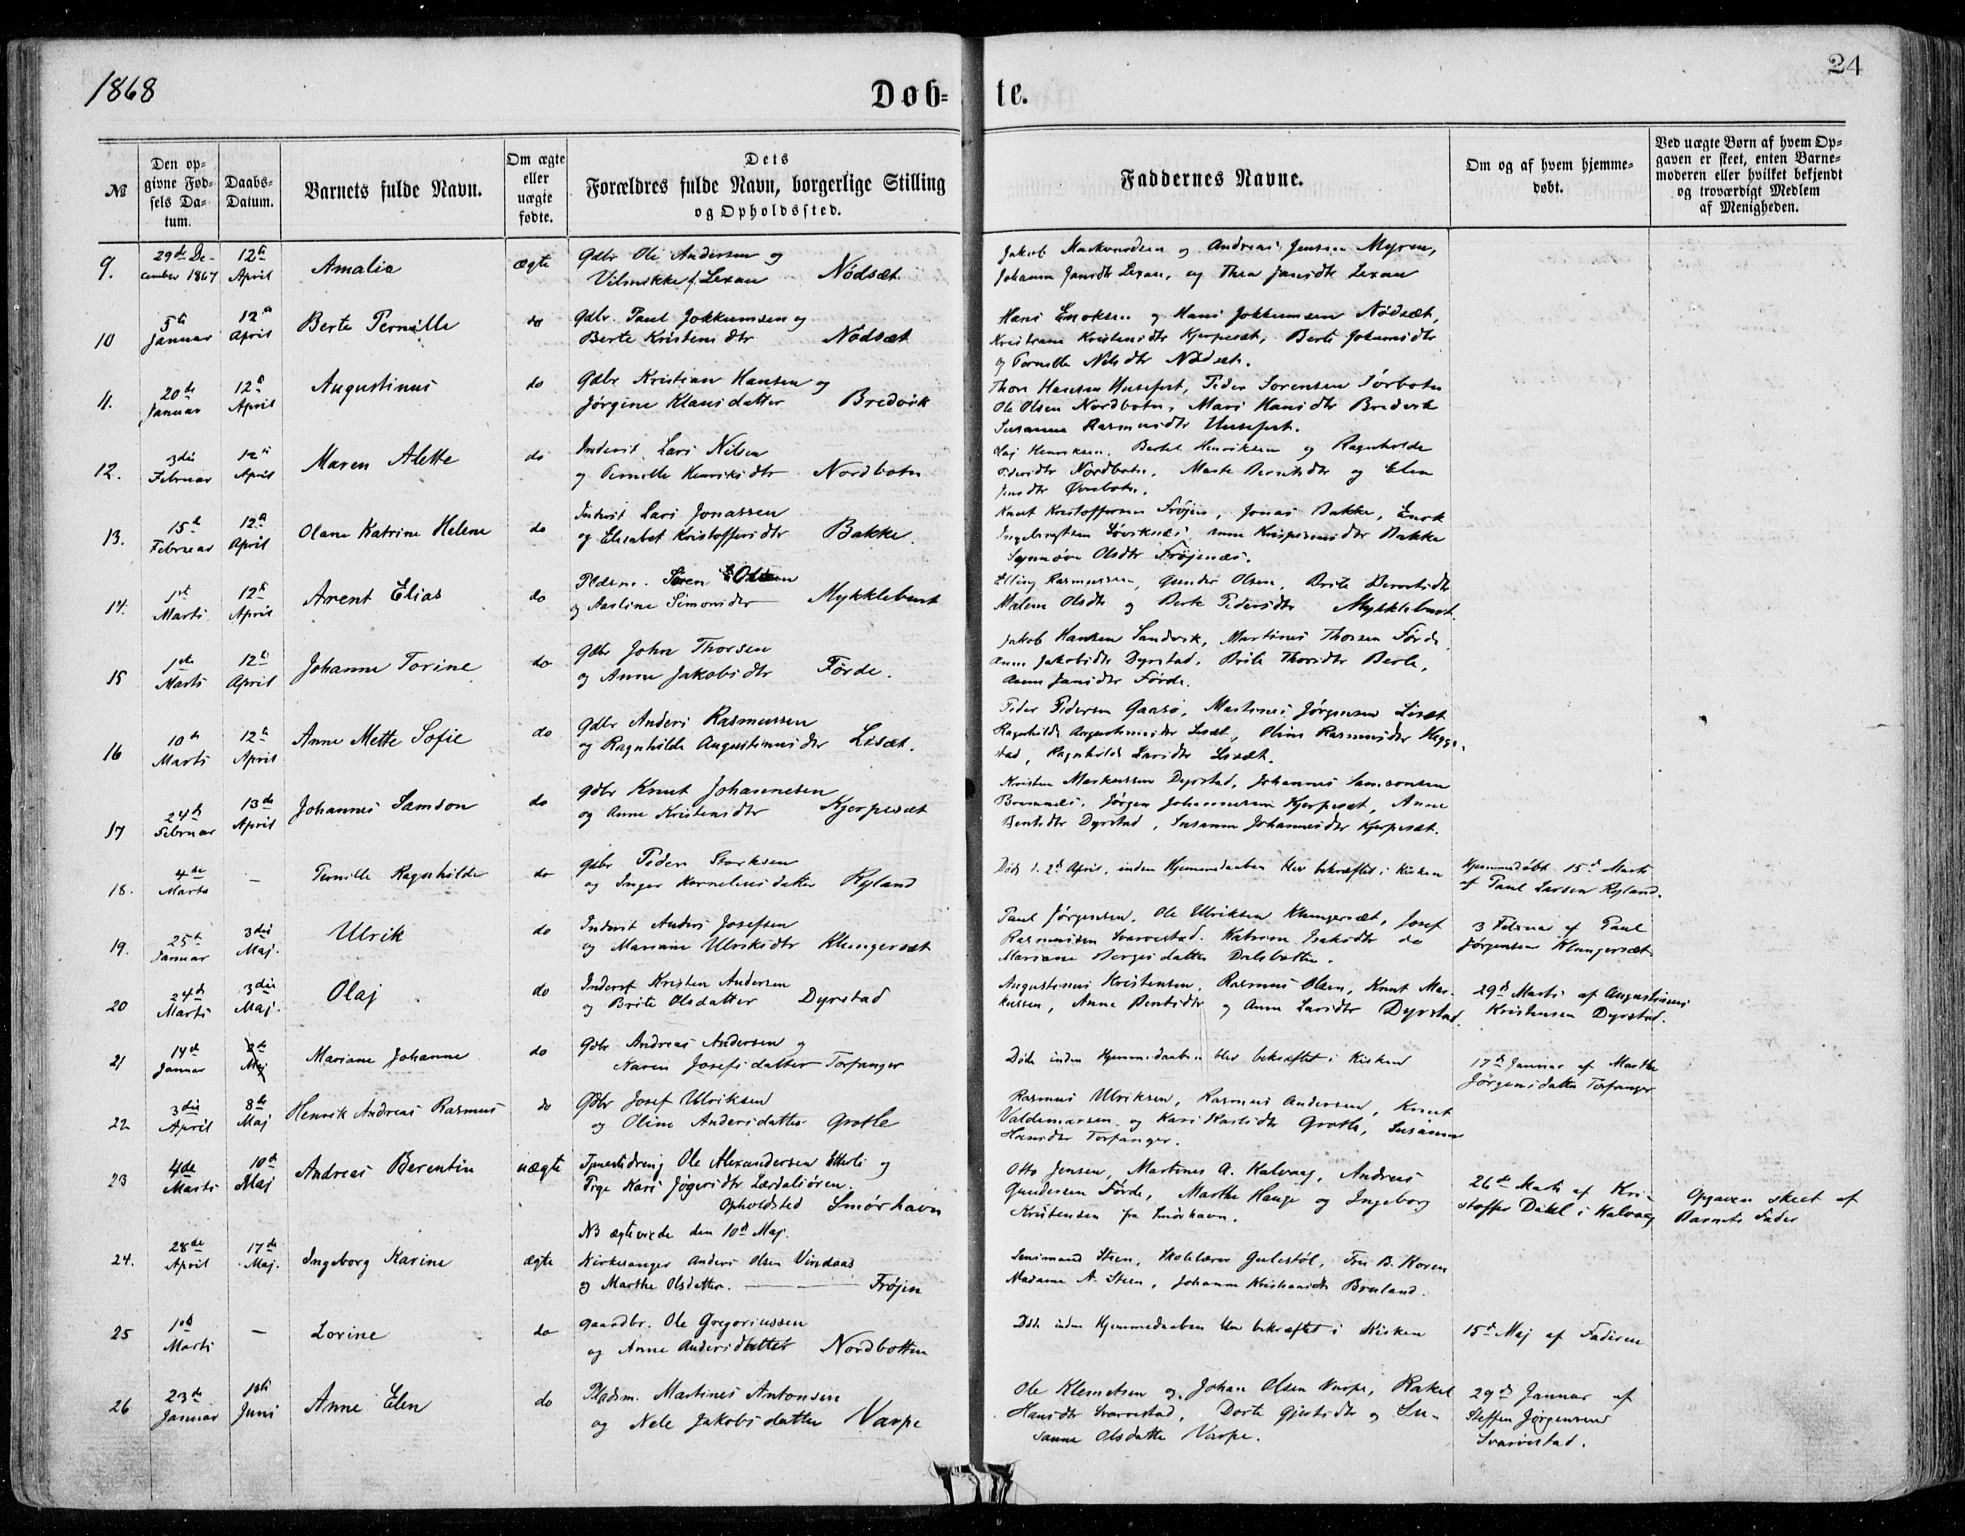 1868
24
Døb-te.
№
Den op-
givne Fød-
sels Da-
tum.
Daabs-
Datum.
Barnets fulde Navn.
Om ægte
eller
uægte
fødte.
Dets
Forældres fulde Navn, borgerlige Stilling
og Opholdssted.
Faddernes Navne.
Om og af hvem hjemme-
døbt.
Ved uægte Børn af hvem Op-
gaven er skeet, enten Barne-
moderen eller hvilket bekjendt
og troværdigt Medlem
af Menigheden.
9. 29de De-
cember 1867 12te April Amalia ægte Gdbr Ole Andersen og
Nødsæt
Jakob og Andreas Jensen Myren,
Johanne Jansdtr Lexau, og Thea Jansdtr Lexau
10 5te Januar 12te April Berte Pernille do Gdbr. Paul Jokkumsen og
Berte Kristensdtr Nødsæt
Hans Enoksen og Hans Jokkumsen Nødsæt,
Kristensdtr Kjerpesæt, Berte Johansdtr
og Pernille Nilsdtr Nødsæt.
11. 20de Januar 12te April Augustinus do Gdbr Kristian Hansen og
Jørgine Klausdatter Bredvik
Thore Hansen Husefest, Peder Sørensen Sørbotn
Ole Olsen Nordbotn, Mari Hansdtr Bredvik
Susanne Rasmusdtr Husefest.
12. 3die Februar 12te April Maren Alette do Inderst. Lars Nilsen
og Pernille Henriksdtr Nordbotn
Olaj Henriksen, Bertel Henriksen og Ragnhilde
Pedersdtr Nordbotn, Marte Berntsdtr og Elen
Jensdtr
13. 15de Februar 12te April Olane Katrine Helene do Inderst Lars Jonassen
og Elisabet Kristoffersdtr Bakke.
Knut Kristoffersen Frøjen, Jonas Bakke, Enok
Ingebregtsen Løviknæs, Anne Krispinusdtr Bakke
Synnøve Olsdtr Frøjenæs.
14. 1ste Marts 12te April Arent Elias do Pladsm. Søren Olsen
og Aasline Simonsdtr Myklebust
Elling Rasmussen, Gunder Olsen, Brite Berntsdtr
Malene Olsdtr og Berte Pedersdtr Myklebust
15 1ste Marts 12te April Johanne Torine do Gdbr John Thorsen
og Anne Jakobsdtr Førde.
Jakob Hansen Sandvik, Martinus Thorsen Førde,
Anne Jakobsdtr Dyrstad, Brite Thorsdtr Berle,
Anne Jansdtr Førde.
16 10de Marts 12te April Anne Mette Sofie do Gdbr Anders Rasmussen
og Ragnhilde Augustinusdtr Lisæt.
Peder Pedersen Gaasø, Martinus Jørgensen Lisæt
Ragnhilde Augustinusdtr Lisæt, Oline Rasmusdtr Hegge-
stad, Ragnhilde Larsdtr Lisæt.
17 24de Februar 13de April Johannes Samson do Gdbr Knut Johannesen
og Anne Kristensdtr Kjerpesæt
Kristen Markussen Dyrstad, Johannes Samsonsen
Bremnæs, Jørgen Johannesen Kjerpesæt, Anne
Bentsdtr Dyrstad, Susanne Johannesdtr Kjerpesæt.
18. 4de Marts – Pernille Ragnhilde do Gdbr Peder Starksen
og Inger Korneliusdatter Ryland
Død d. 2de April, inden Hjemmedaaben blev bekræftet i Kirken
Hjemmedøbt 15de Marts
af Paul Larsen Ryland.
19. 25de Januar 3die Maj. Ulrik do Inderst Anders Josefsen
og Mariane Ulriksdtr Klungersæt
Paul Jørgensen, Ole Ulriksen Klungersæt, Josef
Rasmusen Svarvestad. Katrine Isaksdtr do
Mariane Børgesdatter Dalsbotten.
3 Februar af Paul
Jørgensen Klungersæt
20 24de Marts 3die Maj. Olaj do Inderst Kristen Andersen
og Brite Olsdatter Dyrstad
Augustinus Kristensen, Rasmus Olsen, Knut Mar-
kussen, Anne Bentsdtr og Anne Larsdtr Dyrstad.
29de Marts af Augustinus
Kristensen Dyrstad.
21 14de Januar Maj Mariane Johanne do Gdbr Andreas Andersen og
Karen Josefsdatter Torfanger
Døde inden Hjemmedaaben blev bekræftet i Kirken
17de Januar af Marthe
Jørgensdatter Torfanger
22 3die April 8de Maj Henrik Andreas Rasmus do Gdbr Josef Ulriksen
og Oline Andersdatter Grotle
Rasmus Ulriksen, Rasmus Andersen, Knut
Valdemarsen og Kari Karlsdtr Grotle, Susanne
Hansdtr Torfanger.
23 4de Marts 10de Maj Andreas Berentin uægte Tjenestedreng Ole Alexandersen og
Pige Kari Lærdalsøren.
Opholdsted Smørhavn
NB ægteviede den 10de Maj.
Otto Jensen, Martines A. Kalvaag, Andreas
Gundersen Førde, Marthe Hauge og Ingeborg
Kristensen fra Smørhavn.
26de Marts af Kri-
stoffer Dahl i Kalvaag
Opgaven skeet af
Barnets Fader
24. 28de April 17de Maj. Ingeborg Karine ægte Kirkesanger Anders Olsen Vindaas
og Marthe Olsdatter. Frøjen
Lensmand Steen, Skolelærer Gulestøl, Fru B. Koren
Madame A. Steen, Johanne Kristiansdtr Bruland.
25 1ste Marts – Lovine do Gaardbr. Ole Gregoriussen
og Anne Andersdatter Nordbotten
Døde inden Hjemmedaaben blev bekræftet i Kirken
15de Maj af Faderen
26 23de Januar 1ste Juni Anne Elen do Pladsm. Martines Antonsen
og Nele Jakobsdatter Varpe
Ole Klemetsen og Johan Olsen Varpe, Rakel
Hansdtr Svarvestad, Dorte Gjertsdtr og Su-
sanne Olsdatter Varpe.
29de Januar af
Steffen Jørgensen
Svarvestad.